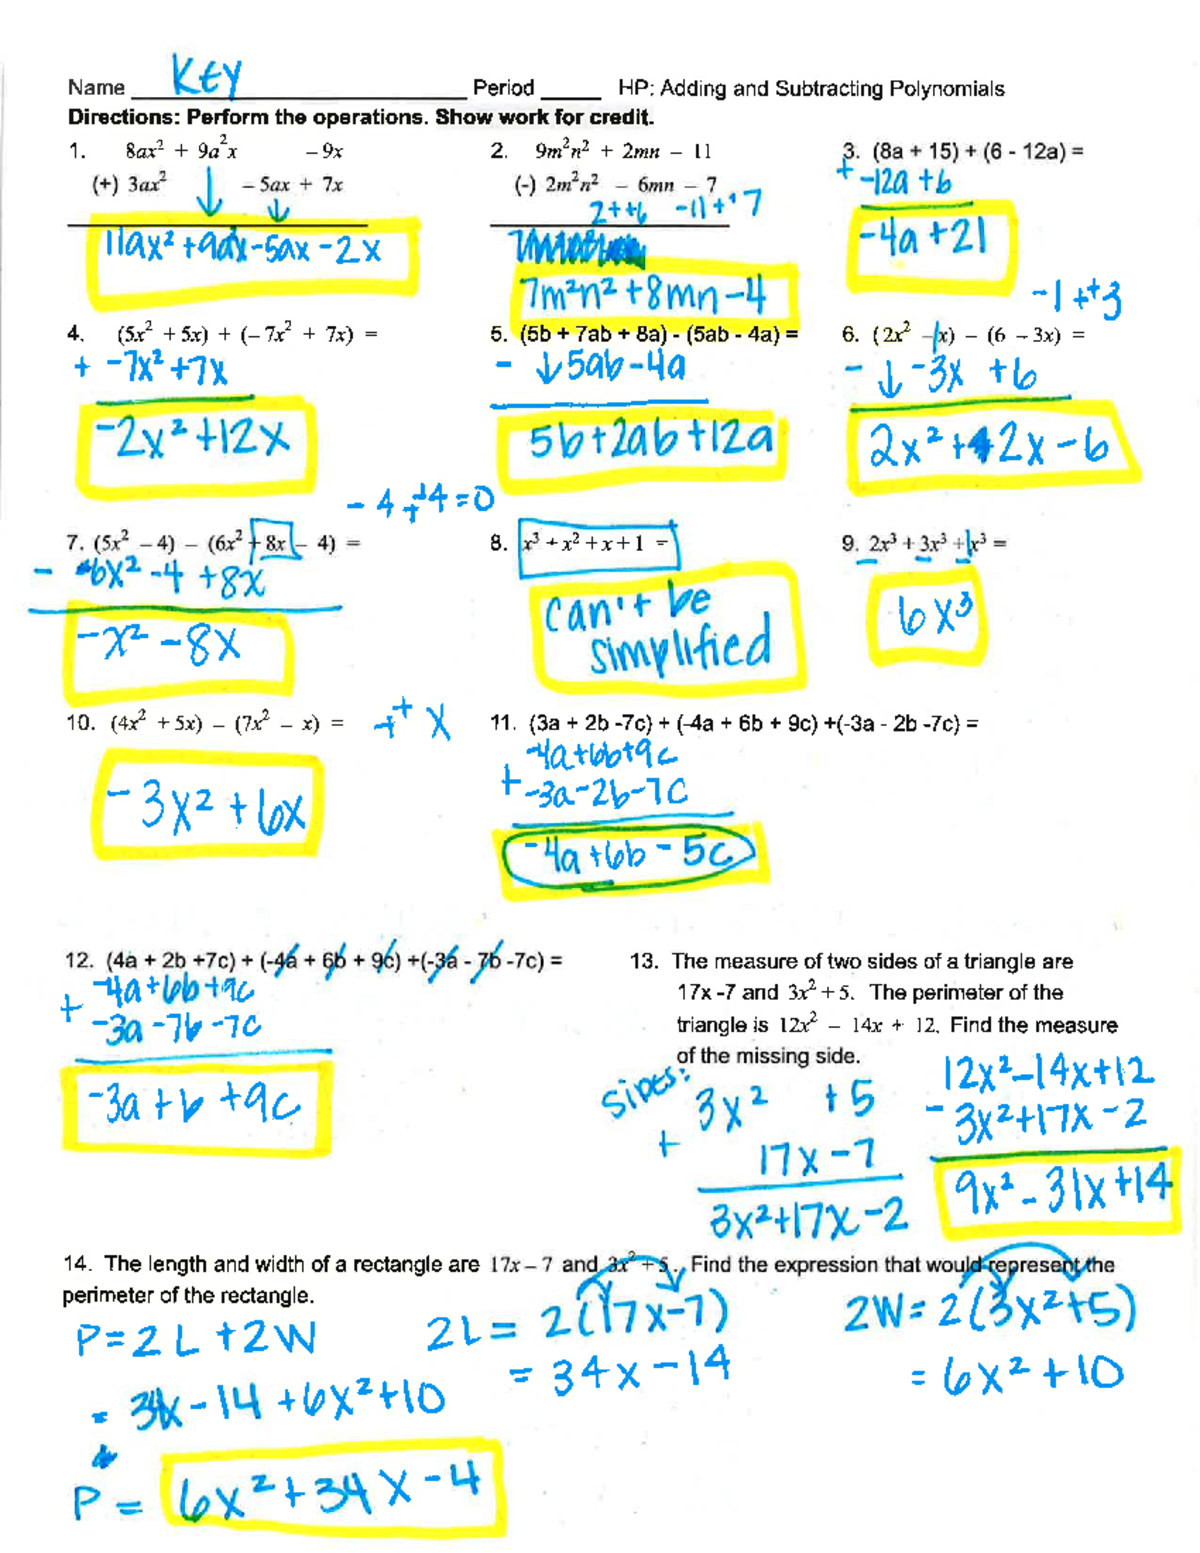 Name KEY Period HP: Adding and Subtracting Polynomials
Directions: Perform the operations. Show work for credit.
1. 8ax² + 9a²x – 9x
(+) 3ax² – 5ax + 7x
11ax² + 9ax - 5ax - 2x
2. 9m²n² + 2mn – 11
(-) 2m²n² – 6mn – 7
2++6 -11++7
7m²n² + 8mn - 4
3. (8a + 15) + (6 - 12a) =
+ -12a + 6
-4a + 21
4. (5x² + 5x) + (– 7x² + 7x) =
+ -7x² + 7x
-2x² + 12x
5. (5b + 7ab + 8a) - (5ab - 4a) =
- ↓ 5ab - 4a
5b + 2ab + 12a
-1 ++3
6. (2x² – x) – (6 – 3x) =
- ↓ -3x + 6
2x² + 2x - 6
-4 ++4 = 0
7. (5x² – 4) – (6x² + 8x – 4) =
- 6x² - 4 + 8x
-x² - 8x
8. x³ + x² + x + 1 =
can't be
simplified
9. 2x³ + 3x³ + x³ =
6x³
10. (4x² + 5x) – (7x² – x) = ++ x
-3x² + 6x
11. (3a + 2b -7c) + (-4a + 6b + 9c) +(-3a - 2b -7c) =
-4a + 6b + 9c
+ -3a - 2b - 7c
-4a + 6b - 5c
12. (4a + 2b +7c) + (-4a + 6b + 9c) +(-3a - 7b -7c) =
-4a + 6b + 9c
+ -3a - 7b - 7c
-3a + b + 9c
13. The measure of two sides of a triangle are
17x -7 and 3x² + 5. The perimeter of the
triangle is 12x² – 14x + 12. Find the measure
of the missing side.
sides:
3x² + 5
+ 17x - 7
3x² + 17x - 2
12x² - 14x + 12
- 3x² + 17x - 2
9x² - 31x + 14
14. The length and width of a rectangle are 17x – 7 and 3x² + 5. Find the expression that would represent the
perimeter of the rectangle.
P = 2L + 2W 2L = 2(17x - 7) 2W = 2(3x² + 5)
= 34x - 14 = 6x² + 10
= 34x - 14 + 6x² + 10
P = 6x² + 34x - 4